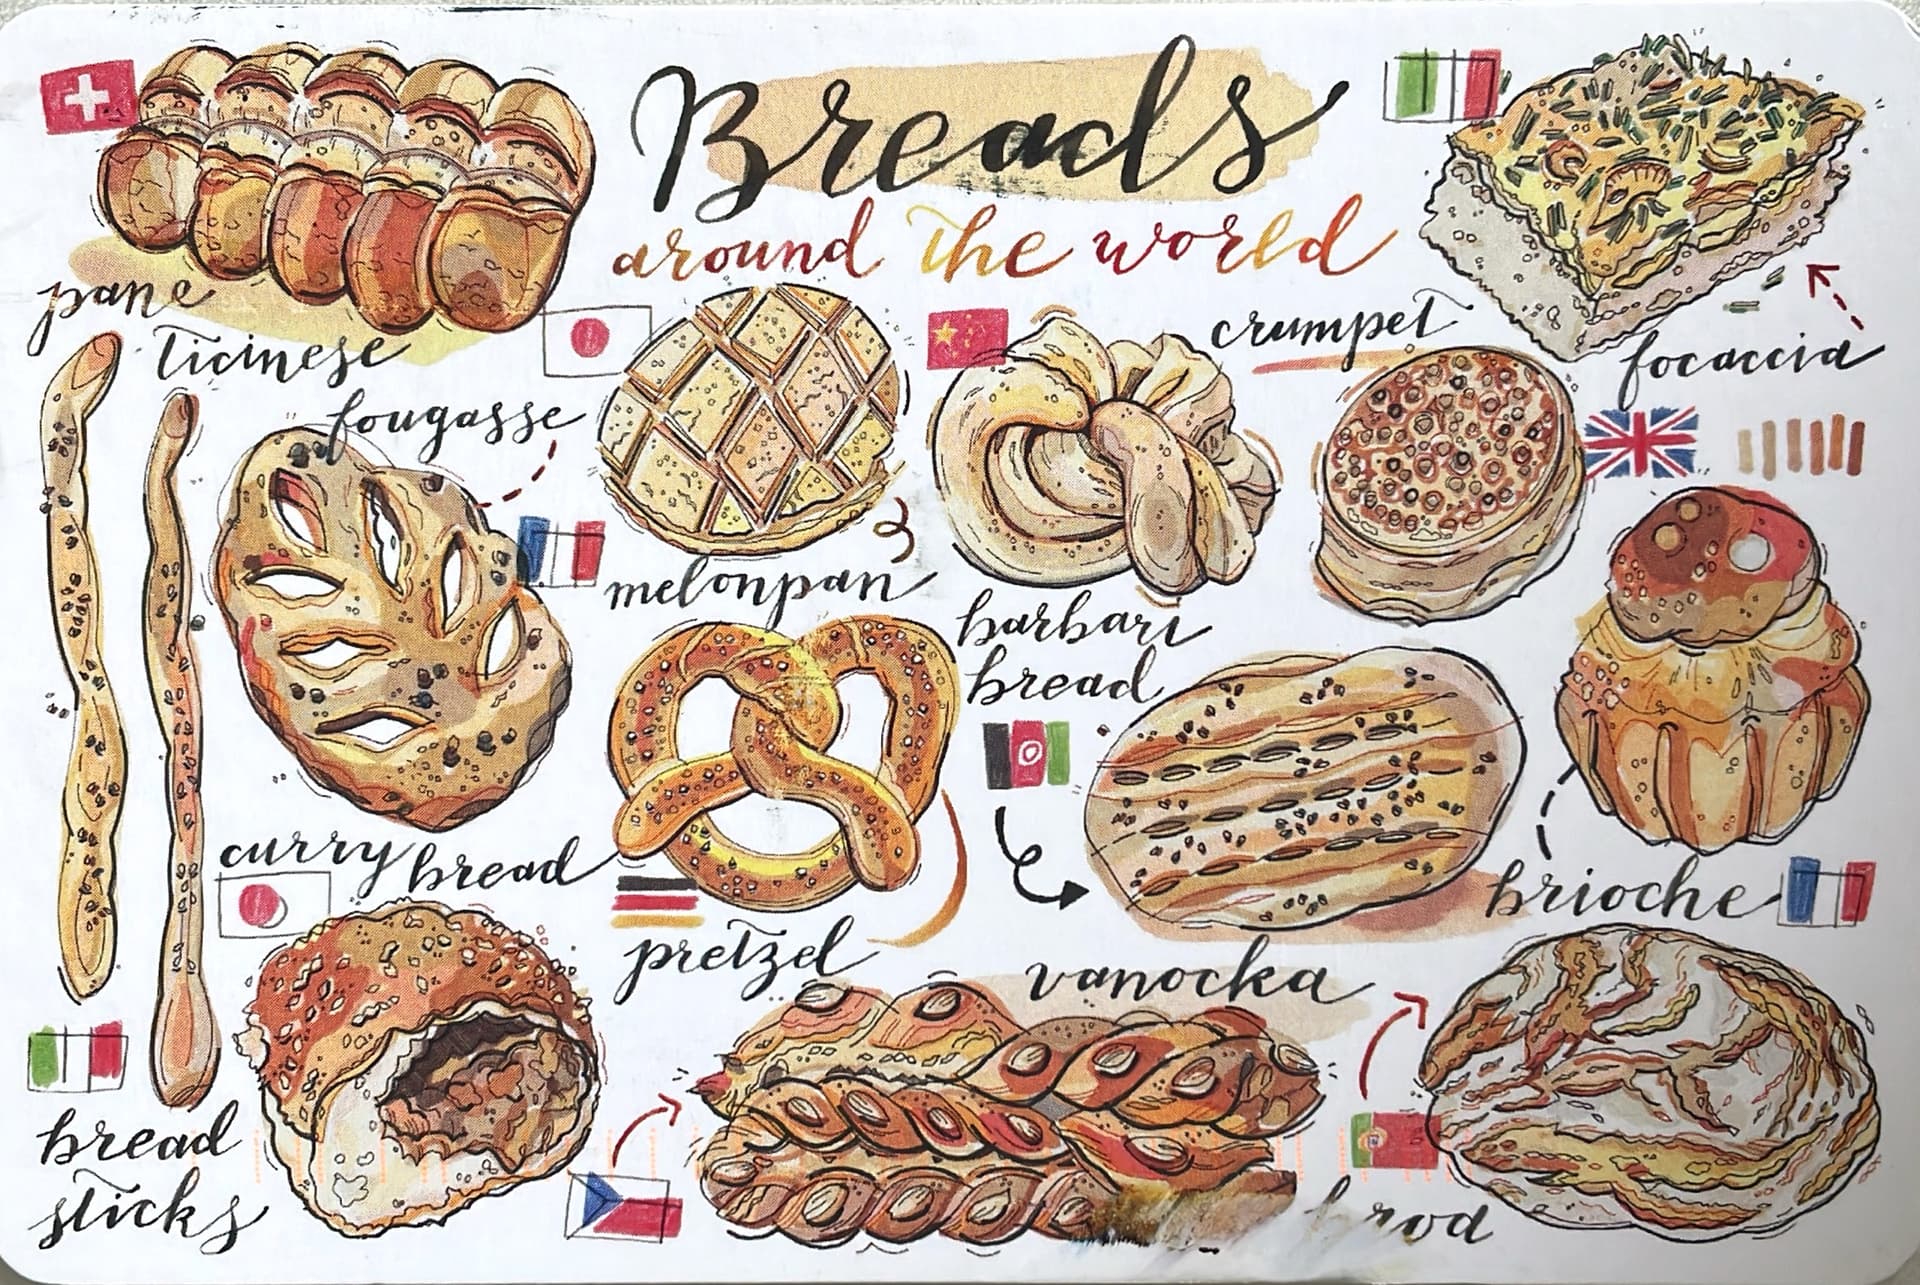 Breads
around the world
pane
ticinese
crumpet
focaccia
fougasse
melonpan
barbari
bread
curry bread
brioche
pretzel
vanocka
bread
sticks